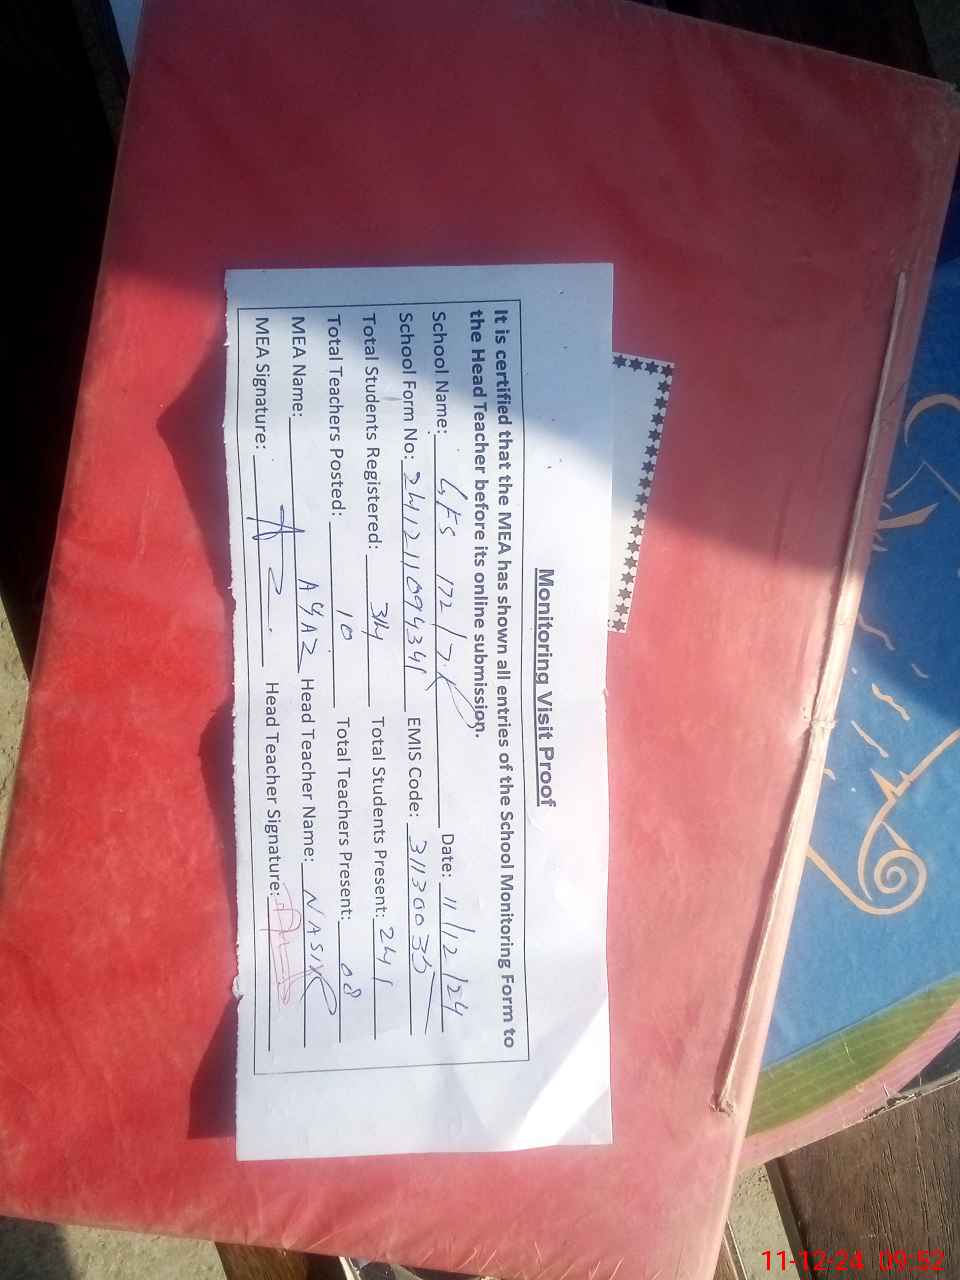 Monitoring Visit Proof
It is certified that the MEA has shown all entries of the School Monitoring Form to
the Head Teacher before its online submission.
School Name: 172/7.R Date: 11/12/24
School Form No: 241211094341 EMIS Code: 31130035
Total Students Registered: 314 Total Students Present: 241
Total Teachers Posted: 10 Total Teachers Present: 08
MEA Name: AYAZ Head Teacher Name: NASIR
MEA Signature: Head Teacher Signature:
11-12-24 09:52